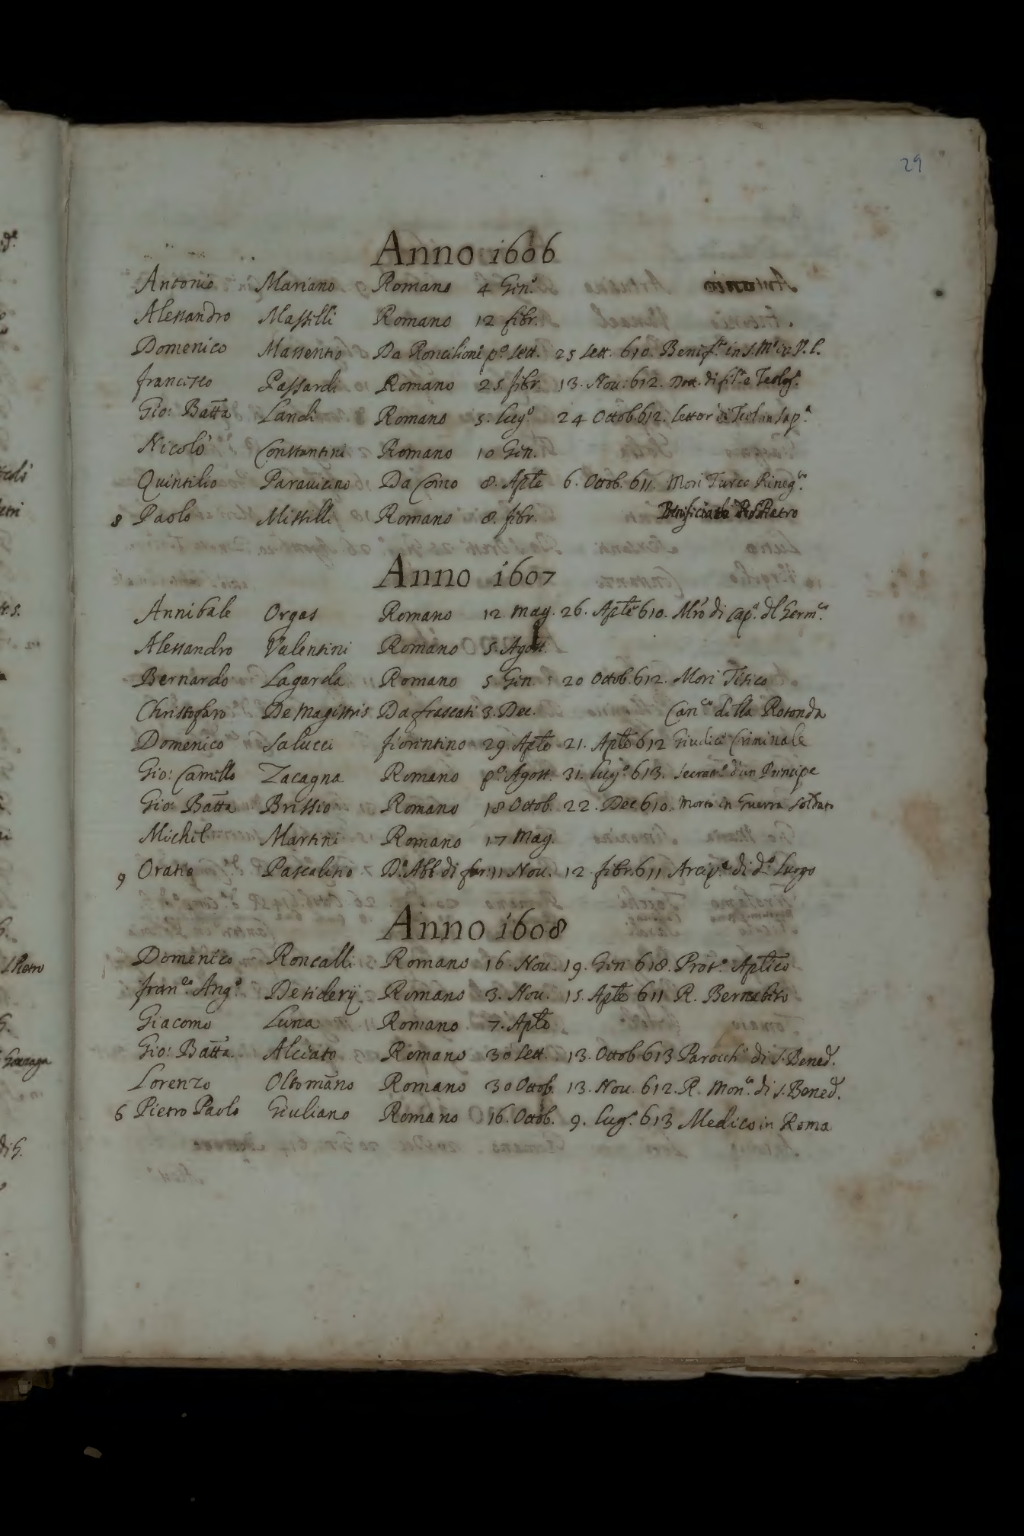 29
Anno 1606
Antonio Mariano Romano 4 Gin.º
Alessandro Massilli Romano 12 fibr.
Domenico Massentio Da Roncilioni pº Sett. 25 Sett. 610. Benifº in S. Mª
Francesco Passardi Romano 25 fibr. 13. Nou: 612. Dott. di filº e Teologº
Gio: Batta Landi Romano 5. Lugº 24 Ottob 612. Lettor
Nicolò Constantini Romano 10 Gin.
Quintilio Parauicino Da Como 8. Aple 6. Ottob. 611 Morì Turco Rinegº
8 Paolo Missilli Romano 8. fibr. Pietro
Anno 1607
Annibale Orgas Romano 12 May. 26. Aple 610. Mro di Capª dl Germco
Alessandro Valentini Romano 5. Agost.
Bernardo Lagarda Romano 5 Gin. 20 Ottob 612. Morì Tisico
Christofaro De Magistris Da frascati 3. Dec. Canco della Rotonda
Domenico Salucci fiorentino 29 Aple 21. Aple 612 Giudice Criminale
Gio: Camillo Zacagna Romano pº Agost. 31. Lugº 613. Secratº d'un Principe
Gio: Batta Brissio Romano 18 Ottob. 22. Dec 610. Morto in Guerra Soldato
Michel Martini Romano 17 May.
9 Oratio Pascalino Dª Abb di far 11 Nou. 12. fibr. 611 Arcipº di dº Luogo
Anno 1608
Domenico Roncalli Romano 16 Nou. 19. Gin 618. Protº Aplico
Franco Angº Desiderij Romano 3. Nou. 15. Aple 611 R. Bernabito
Giacomo Luna Romano 7. Aple
Gio: Batta Alciato Romano 30 Sett. 13. Ottob 613 Parochº di S. Bened.
Lorenzo Ottomano Romano 30 Ottob. 13. Nou. 612. R. Monº di S. Bened.
6 Pietro Paolo Giuliano Romano 16. Ottob. 9. Lugº 613 Medico in Roma